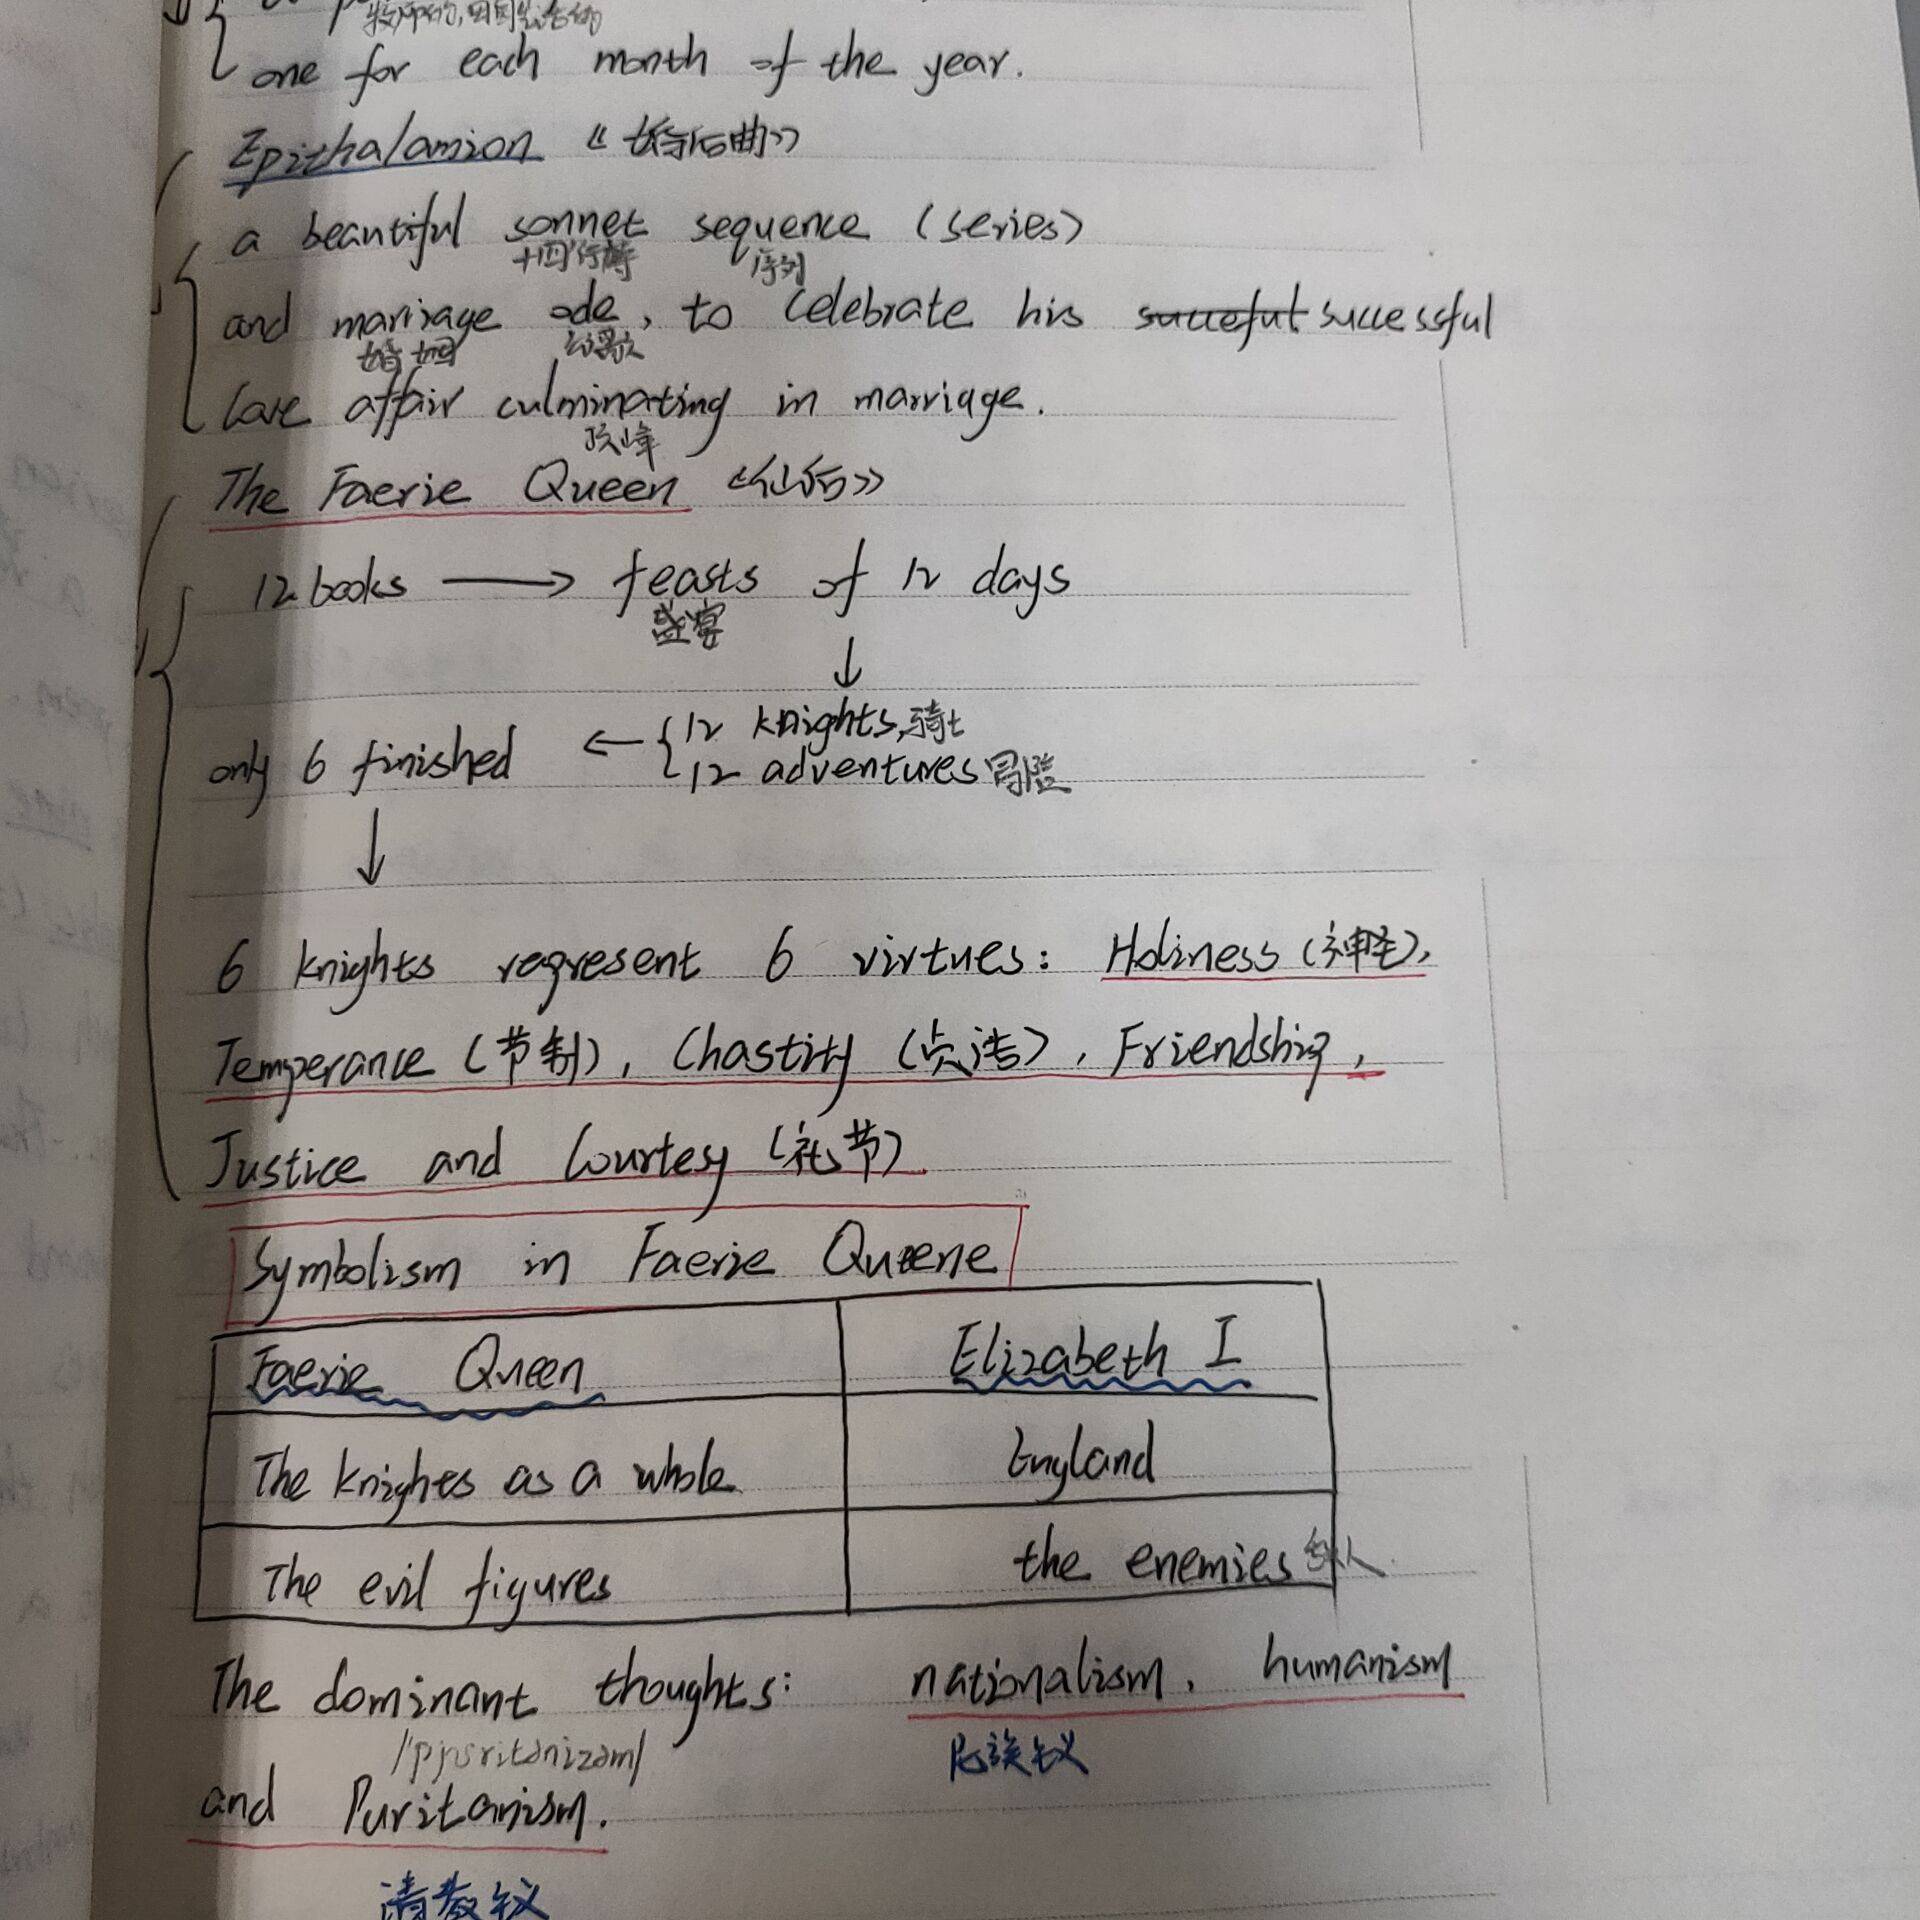 one for each month of the year.
Epithalamion 《婚后曲》
a beautiful sonnet sequence (series)
十四行诗 序列
and marirage ode, to celebrate his succeful successful
婚姻 颂歌
love affair culminating in marriage.
顶峰
The Faerie Queen 《仙后》
12 books → feasts of 12 days
盛宴
↓
only 6 finished ← { 12 knights, 骑士
12 adventures 冒险
↓
6 knights represent 6 virtues: Holiness (神圣),
Temperance (节制), Chastity (贞洁), Friendship,
Justice and Courtesy (礼节).
Symbolism in Faerie Queene
Faerie Queen Elizabeth I
The knights as a whole England
The evil figures the enemies 敌人
The dominant thoughts: nationalism, humanism
/'pjʊəritənizəm/ 民族主义
and Puritanism.
清教主义